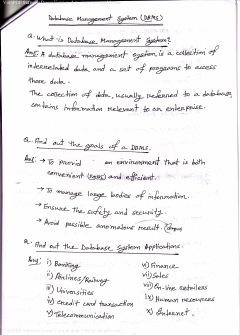 Database Management System (DBMS)
Q. What is Database Management System?
Ans: A database management system is a collection of
interrelated data and a set of programs to access
those data.
The collection of data, usually referred to a database,
contains information relevant to an enterprise.
Q. Find out the goals of a DBMS.
Ans: → To provid an environment that is both
convenient and efficient.
→ To manage large bodies of information.
→ Ensure the safety and security.
→ Avoid possible anomalous result.
Q. Find out the Database System Applications.
Ans: i) Banking vi) Finance
ii) Airlines/Railway vii) Sales
iii) Universities viii) On-line retailers
iv) Credit card transaction ix) Human resources
v) Telecommunication x) Internet.